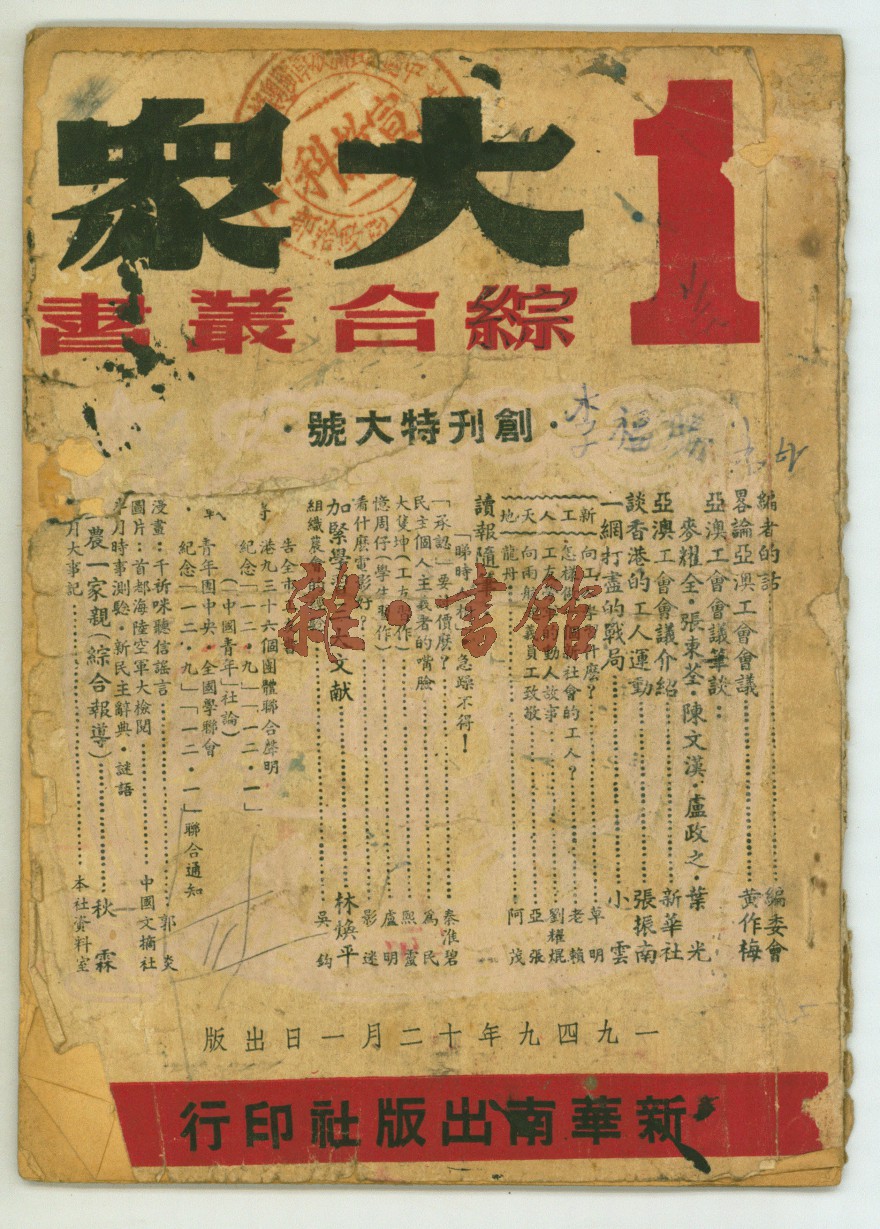 1
大眾
綜合叢書
·創刊特大號·
編者的話 編委會
畧論亞澳工會會議 黃作梅
亞澳工會會議筆談:
麥耀全·張東荃·陳文漢·盧政之·葉光
亞澳工會會議介紹 新華社
談香港的工人運動 張振南
一網打盡的戰局 小雲
新工人天地
草明
怎樣做一個新社會的工人? 老賴
工友 的動人故事 劉耀焜
向兩航起義員工致敬 亞張
龍丹 阿茂
讀報隨筆
「睇時 」急躁不得!
「承認」要計價麼? 秦淮碧
民主個人主義者的嘴臉 為民
大隻坤(工友習作) 熙靈
憶周仔(學生習作) 盧明
看什麼電影好? 影迷
加緊學習三大文献 林煥平
組織農會的經驗 吳鈞
告全市
港九三十六個團體聯合聲明
紀念「一二·九」「一二·一」
(「中國青年」社論)
青年團中央·全國學聯會
紀念「一二·九」「一二·一」聯合通知
漫畫:千祈咪聽信謠言 郭炎
圖片:首都海陸空軍大檢閱 中國文摘社
半月時事測驗·新民主辭典·謎語
農一家親(綜合報導) 秋霖
月大事記 本社資料室
一九四九年十二月一日出版
新華南出版社印行
雜·書館